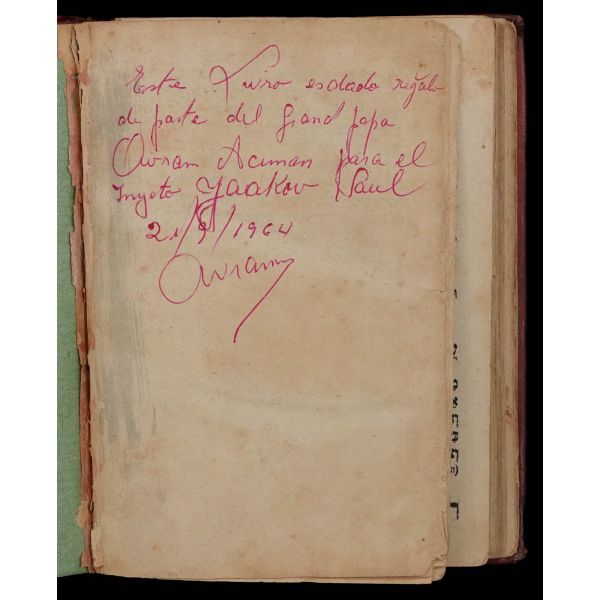 Este Livro es dado regalo
de parte del grand papa
Avram Aciman para el
Inyeto Yaakov Saul
21/9/1964
Avram